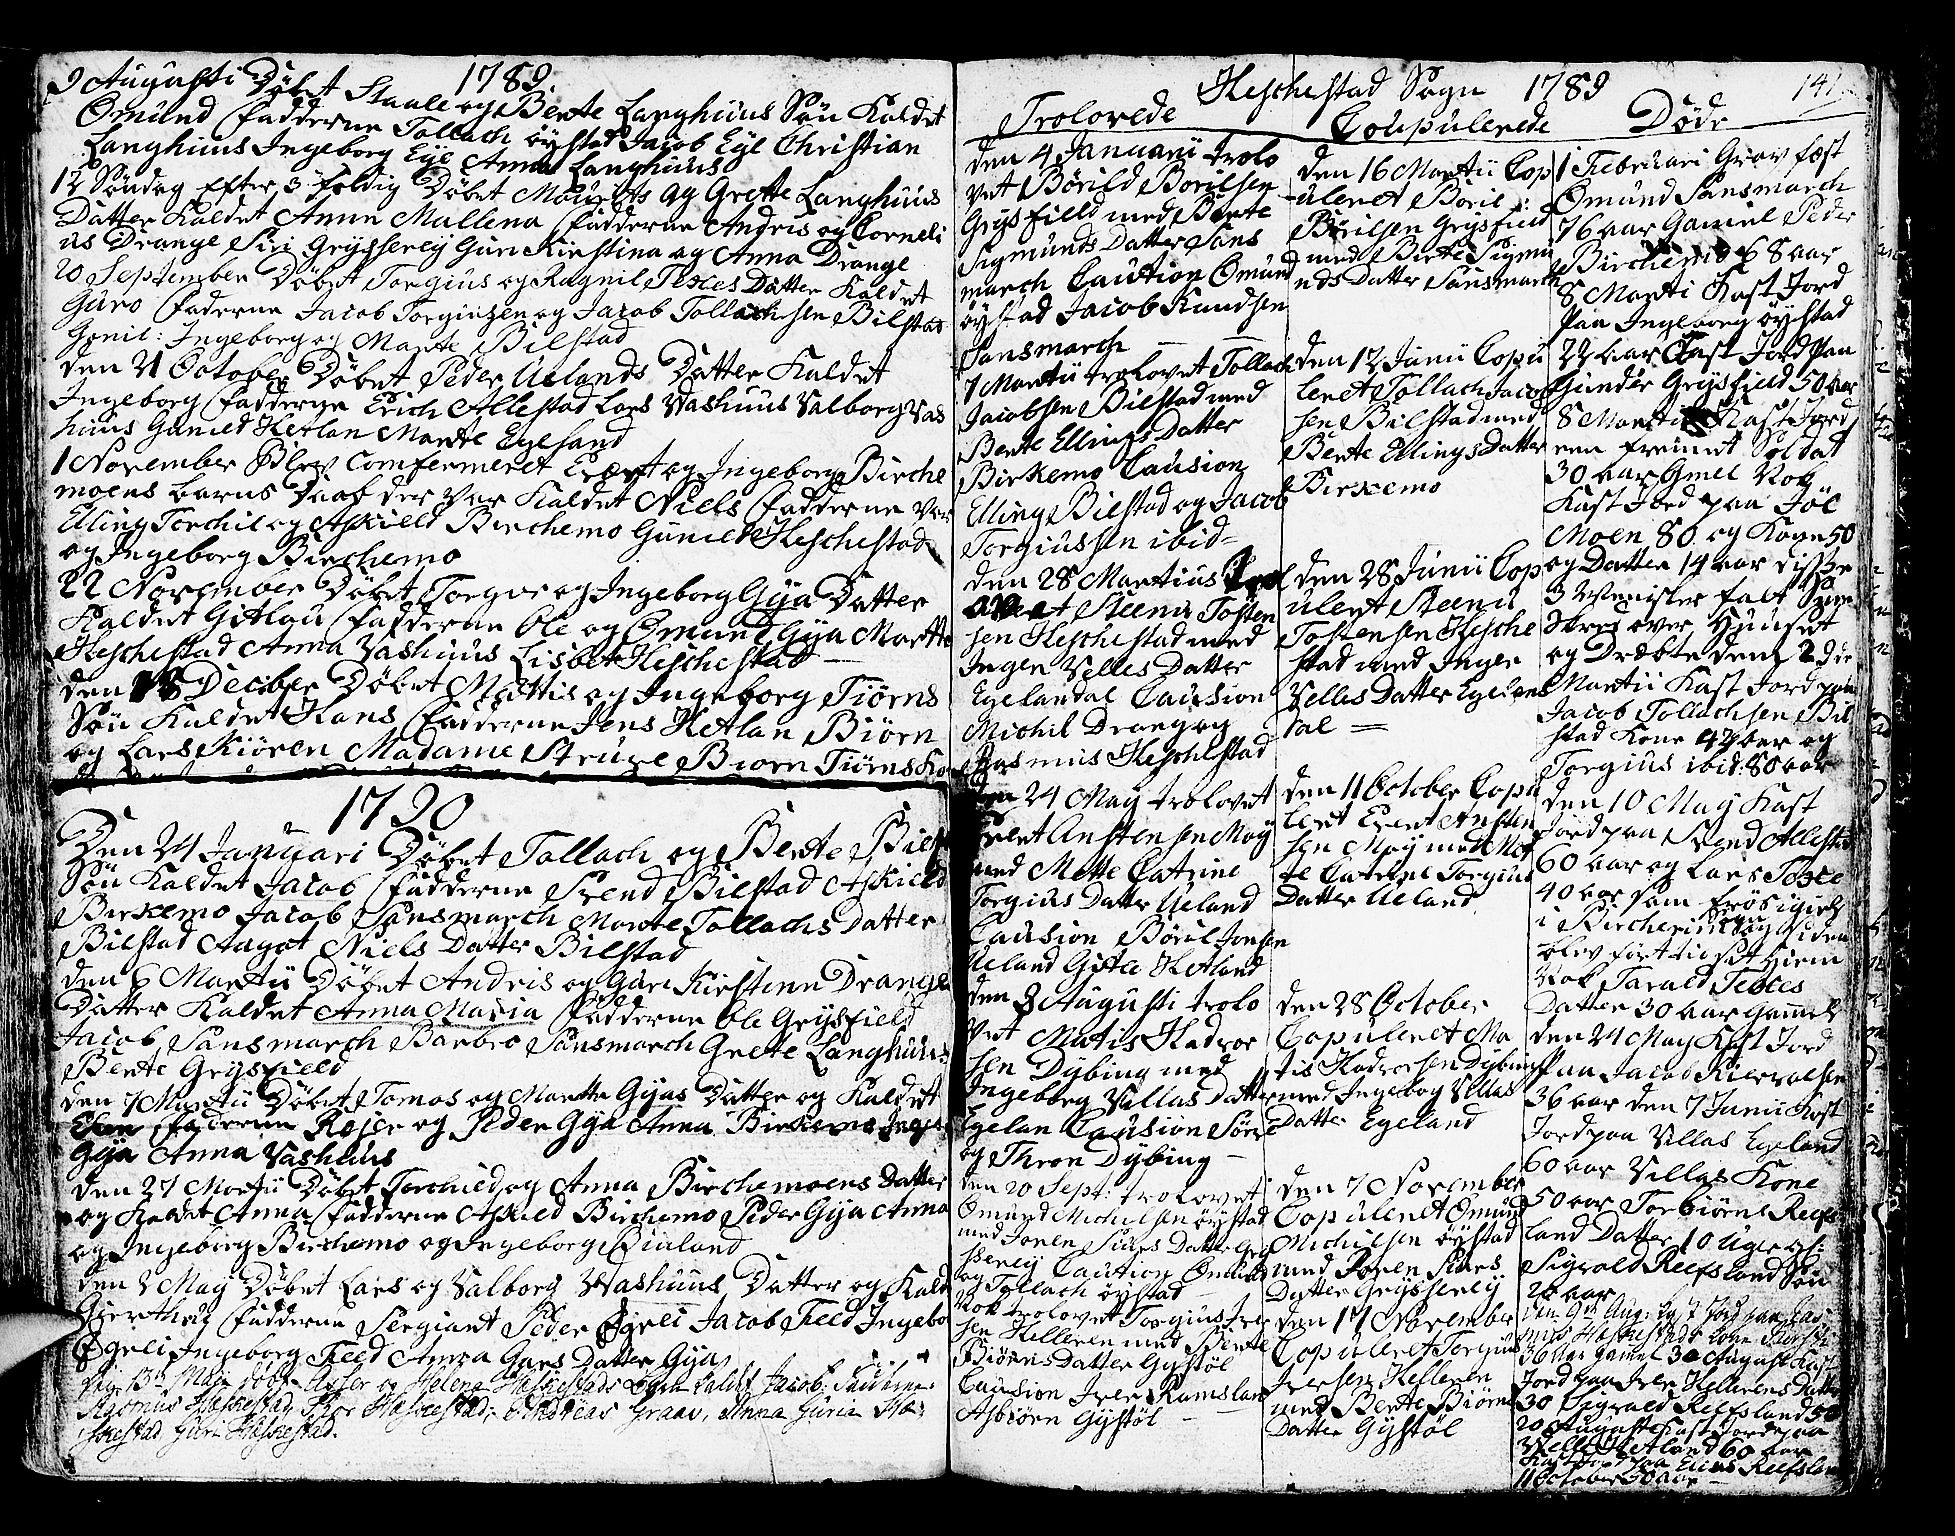 1789.
9 Augusti Döbt Staale og Bente Langhuus Sön Kaldet
Omund Fadderne Tollach öystad Jacob Eye Christian
Langhuus Ingeborg Eye Anna Langhuus
12 Söndag Efter 3 foldig Döbet Mourits og Grette Langhuus
Datter Kaldet Anna Mallena Fadderne Andris og Corneli
us Drange Siri Grysserey Guri Kirstina og Anna Drange
20 September Döbet Torgius og Ragnil Texces Datter Kaldet
Guro Faderne Jacob Torgiusen og Jacob Tollachsen Bilstad
Gonil: Ingeborg og Marte Bilstad
den 21 October Döbet Peder Uelands Datter Kaldet
Ingeborg Fadderne Erich Allestad Lars Vashuus Valborg Vas
huus Guneld Hetlan Marte Egesand
1 November Blev Comfermeret Evert og Ingeborg Birche
moens barns Daab der var Kaldet Niels Fadderne var
Elling Torchil og Askield Birchemo Guneld Heschestad
og Ingeborg Birchemo
22 November Döbet Torger og Ingeborg Gya Datter
Kaldet Gitlau Fadderne Ole og Omund Gya Martte
Heschestad Anna Vashuus Lisbet Heschestad
den 28 Deciber Döbet Mattis og Ingeborg Tiörns
Sön Kaldet Hans Fadderne Jens Hetlan Biörn
og Lars Kiören Madame Struve Biorn Tiörns Ko
1790
Den 24 Januari Döbet Tollach og Bente Bilst
Sön Kaldet Jacob Fadderne Svend Bilstad Askield
Birkemo Jacob Sansmarch Marte Tollachs Datter
Bilstad Aagot Niels Datter Bilstad
den 6 Martii Döbet Andris og Guri Kirstinn Drange
Datter Kaldet Anna Maria Fadderne Ole Grysfield
Jacob Sansmarch Barbro Sansmarch Grete Langhuus
Bente Grysfield
den 7 Martii Döbet Tomas og Marette Gyas Datter og Kaldet
Elen Faderne Rejer og Peder Gya Anna Birkemo Inge
Gya Anna Vashuus
den 27 Martii Döbet Torchild og Anna Birchemoens Datter
og Kaldet Anna Fadderne Askild Birchemo Peder Gya Anna
og Ingeborg Birchemo og Ingeborg Eialand
den 2 May Döbet Lars og Valborg Vashuus Datter og Kald
Gierthrug Fadderne Sergiant Peder Egeli Jacob Feed Ingebo
Egeli Ingeborg Feed Anna Gars Datter Gya
Helene Heskestads Sön kaldt Jacob:
Rasmus Heskestad, Heskestad, Andreas Graav, Anna Guria He=
skestad Guri Heskestad.
Heschestad Sogn 1789
141
Trolovede
Den 4 Januarii trolo
vet Börild Borilsen
Grysfield med Bente
Sigmunds Datter Sans
march Caution Omund
öystad Jacob Knudsen
Sansmarch
7 Martii trolovet Tollach
Jacobsen Bilstad med
Bente Ellings Datter
Birkemo Causion
Elling Bilstad og Jacob
Torgiussen ibid=
den 28 Martius Trol
ovet Steenu Tosten
sen Heschestad med
Inger Velles Datter
Egelandal Causion
Michil Drang og
Rasmus Heschestad
den 24 May trolovet
Evert Anstensen Moy
med Mette Catrine
Torgius Datter Ueland
Causion Böril Jonsen
Ueland Gitle Hetland
den 3 Augusti trolo
vet Matis Hadvor
sen Dybing med
Ingeborg Villas Datter
Egelan Causion Sörre
og Thron Dybing
den 20 Sept: trolovet
Omund Michelsen öystad
med Joren Siurs Datter Gry
sserey Caution Omund
og Tollach öystad
Nok trolovet Torgius Iver
sen Helleren med Bente
Biörns Datter Gystöl
Causion Iver Ramsland
Asbiörn Gystöl
Coupulerede
den 16 Martii Cop
uleret Boril
Börilsen Grysfield
med Bente Sigmu
nds Datter Sansmarch
den 12 Junii Copu
leret Tollach Jacob
sen Bilstad med
Bente Ellings Datter
Birkemo
den 28 Junii Cop
ulert Steenu
Tostensen Hesche
stad med Inger
Velles Datter Egelans
dal =
den 11 October Copu
lert Evert Ansten
sen Moy med Met
te Catrine Torgius
Datter Ueland
den 28 October
Copuleret Ma
tis Hadvorsen Dybing
med Ingebog Villas
Datter Egeland
den 7 November
Copuleret Omund
Michilsen öystad
med Joren Siurs
Datter Grysserey
den 17 November
Copuleret Torgius
Iversen Helleren
med Bente Biörns
Datter Gystöl
Döde
1 Februari Grav fæst
Omund Sansmarch
76 aar Gamel Peder
Birchemo 68 aar
8 Marti Kast Jord
paa Ingeborg öystad
22 aar Kast Jord paa
Gunder Grysfield 50 aar
8 Martii Kast Jord
een fremet Soldat
30 aar Gmel Nok
Kast Jord paa Jöl
Moen 80 og Kone 50
og Datter 14 aar disse
3 Menisker falt Snee
Skred over Huuset
og Dræbte dem 2 die
Martii Kast Jord paa
Jacob Tollachsen Bil
stad Kone 47 aar og
Torgius ibid: 80 aar
den 10 May Kast
Jord paa Svend Allestad
60 aar og Lars Texce
40 aar som frösigiel
i Bircherim Sogn siden
blev fört til sit Hiem
Nok Tarald Texces
Datter 30 aar Gammel
den 24 May Kast Jord
Paa Jacob Sieevalsen
36 aar den 7 Junii Kast
Jord paa Villas Egeland
60 aar Villas Kone
50 aar Torbiörns Reefs
land Datter 10 Uger gl:
Sigvald Reefsland Sön
2½ aar
den 9de Aug: kast Jord paa Ras
mus Heskestads Kone
36 aar gamel 30 August Kast
Jord paa Iver Hellerens Datter
30 Sigvald Reefsland 50
20 August Kast Jord paa
Velle Hetland 60 aar
Kast Jord paa Elias Reefsland
11 October 50 aar